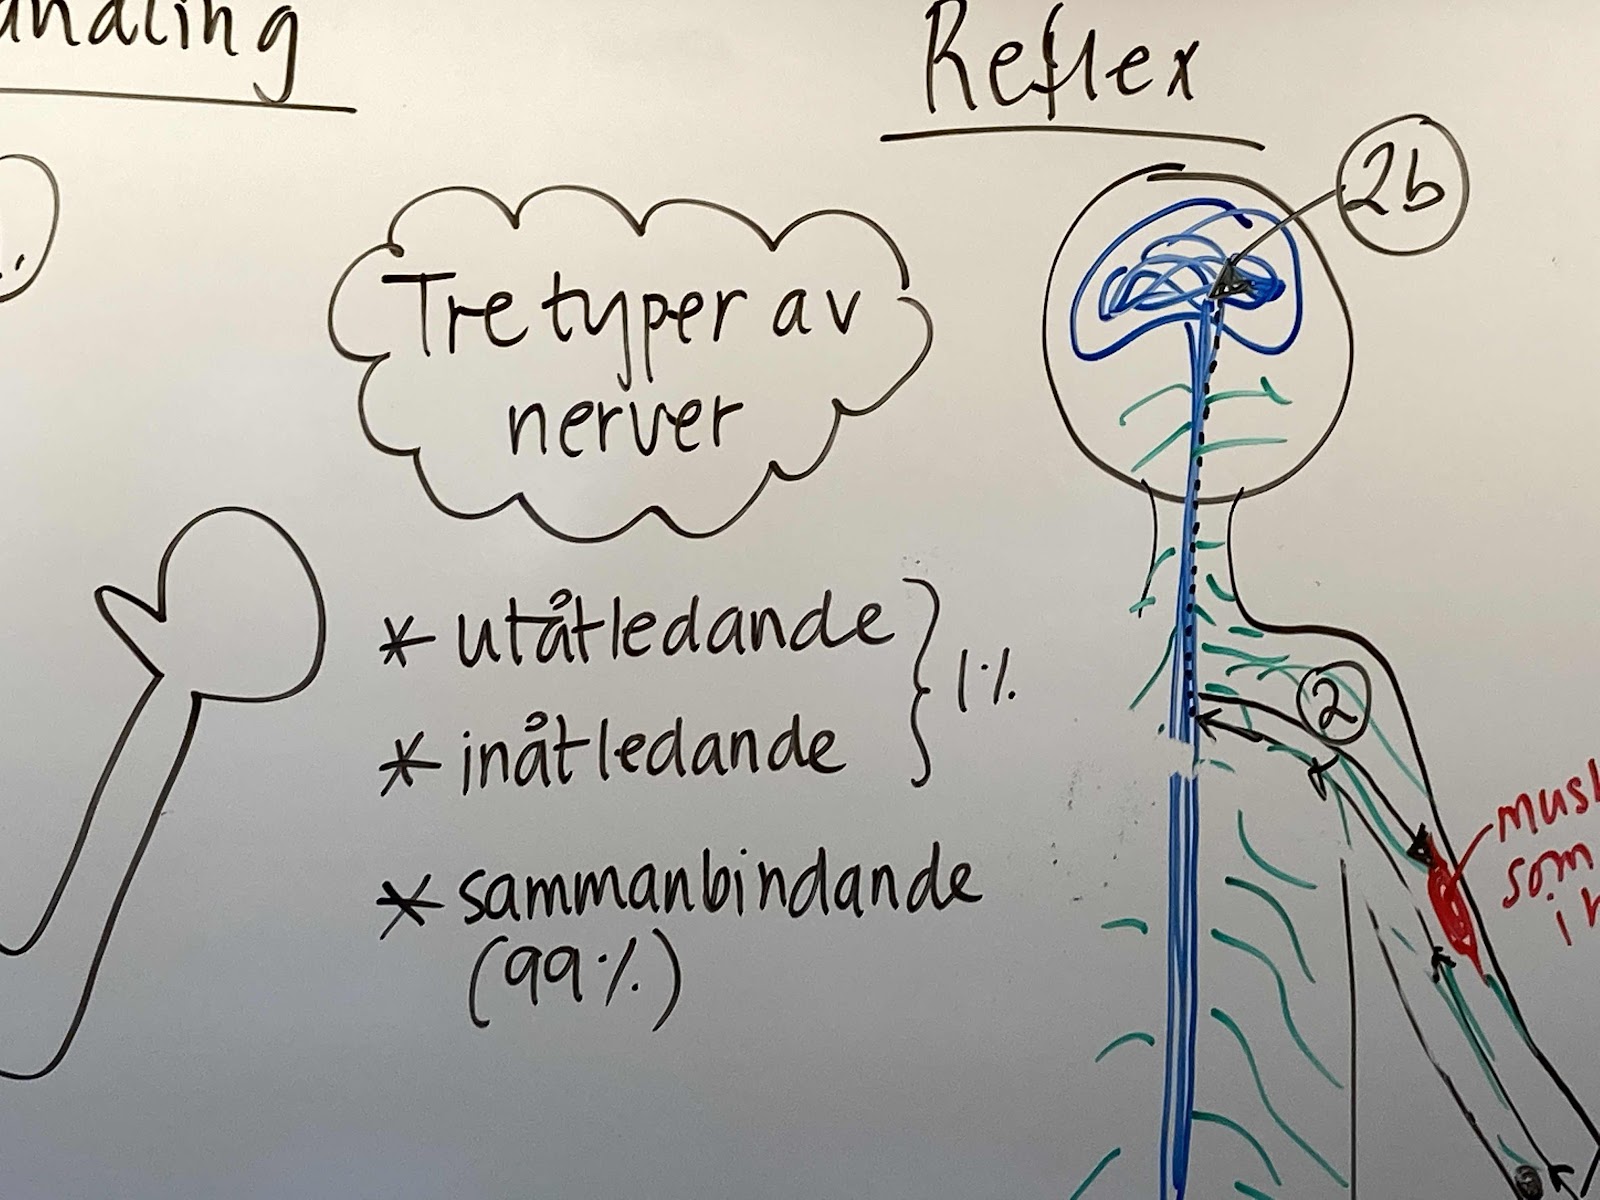 Reflex
2b
Tre typer av
nerver
* utåtledande
* inåtledande
1%
* sammanbindande
(99%)
2
som